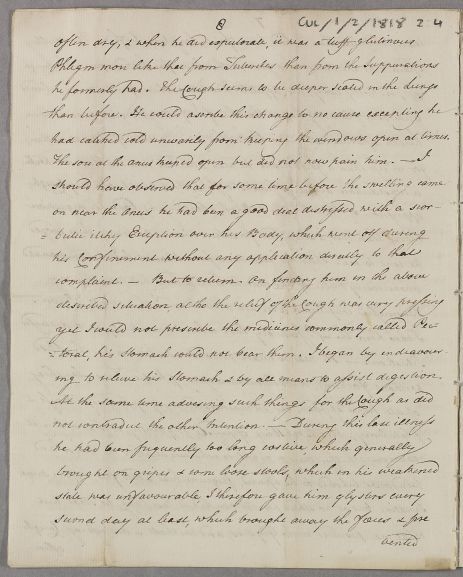 8
CUL/1/2/1818 24
often dry, & when he did expectorate, it was a tuff glutinous
Phlegm more like that from Tubercles than from the suppurations
he formerly had. The Cough seems to be deeper seated in the Lungs
than before. He could ascribe this change to no cause excepting he
had catched cold unwarily from keeping the windows open at times.
The sore at the anus keeped open but did not now pain him. — I
should have observed that for some time before the swelling came
on near the Anus he had been a good deal distressed with a scor-
-butic itchy Eruption over his Body, which went off during
his Confinement without any application directly to that
complaint. — But to return. On finding him in the above
described situation altho the relief of the Cough was very pressing
yet I would not prescribe the medicines commonly called Pec-
-toral, his stomach could not bear them. I began by endeavour-
ing to relieve his Stomach & by all means to assist digestion.
At the same time advising such things for the Cough as did
not contradict the other intention. — During this last illness
he had been frequently too long costive which generally
brought on gripes & some loose stools, which in his weakened
state was unfavourable I therefore gave him glysters every
second day at least, which brought away the fæces & pre
vented